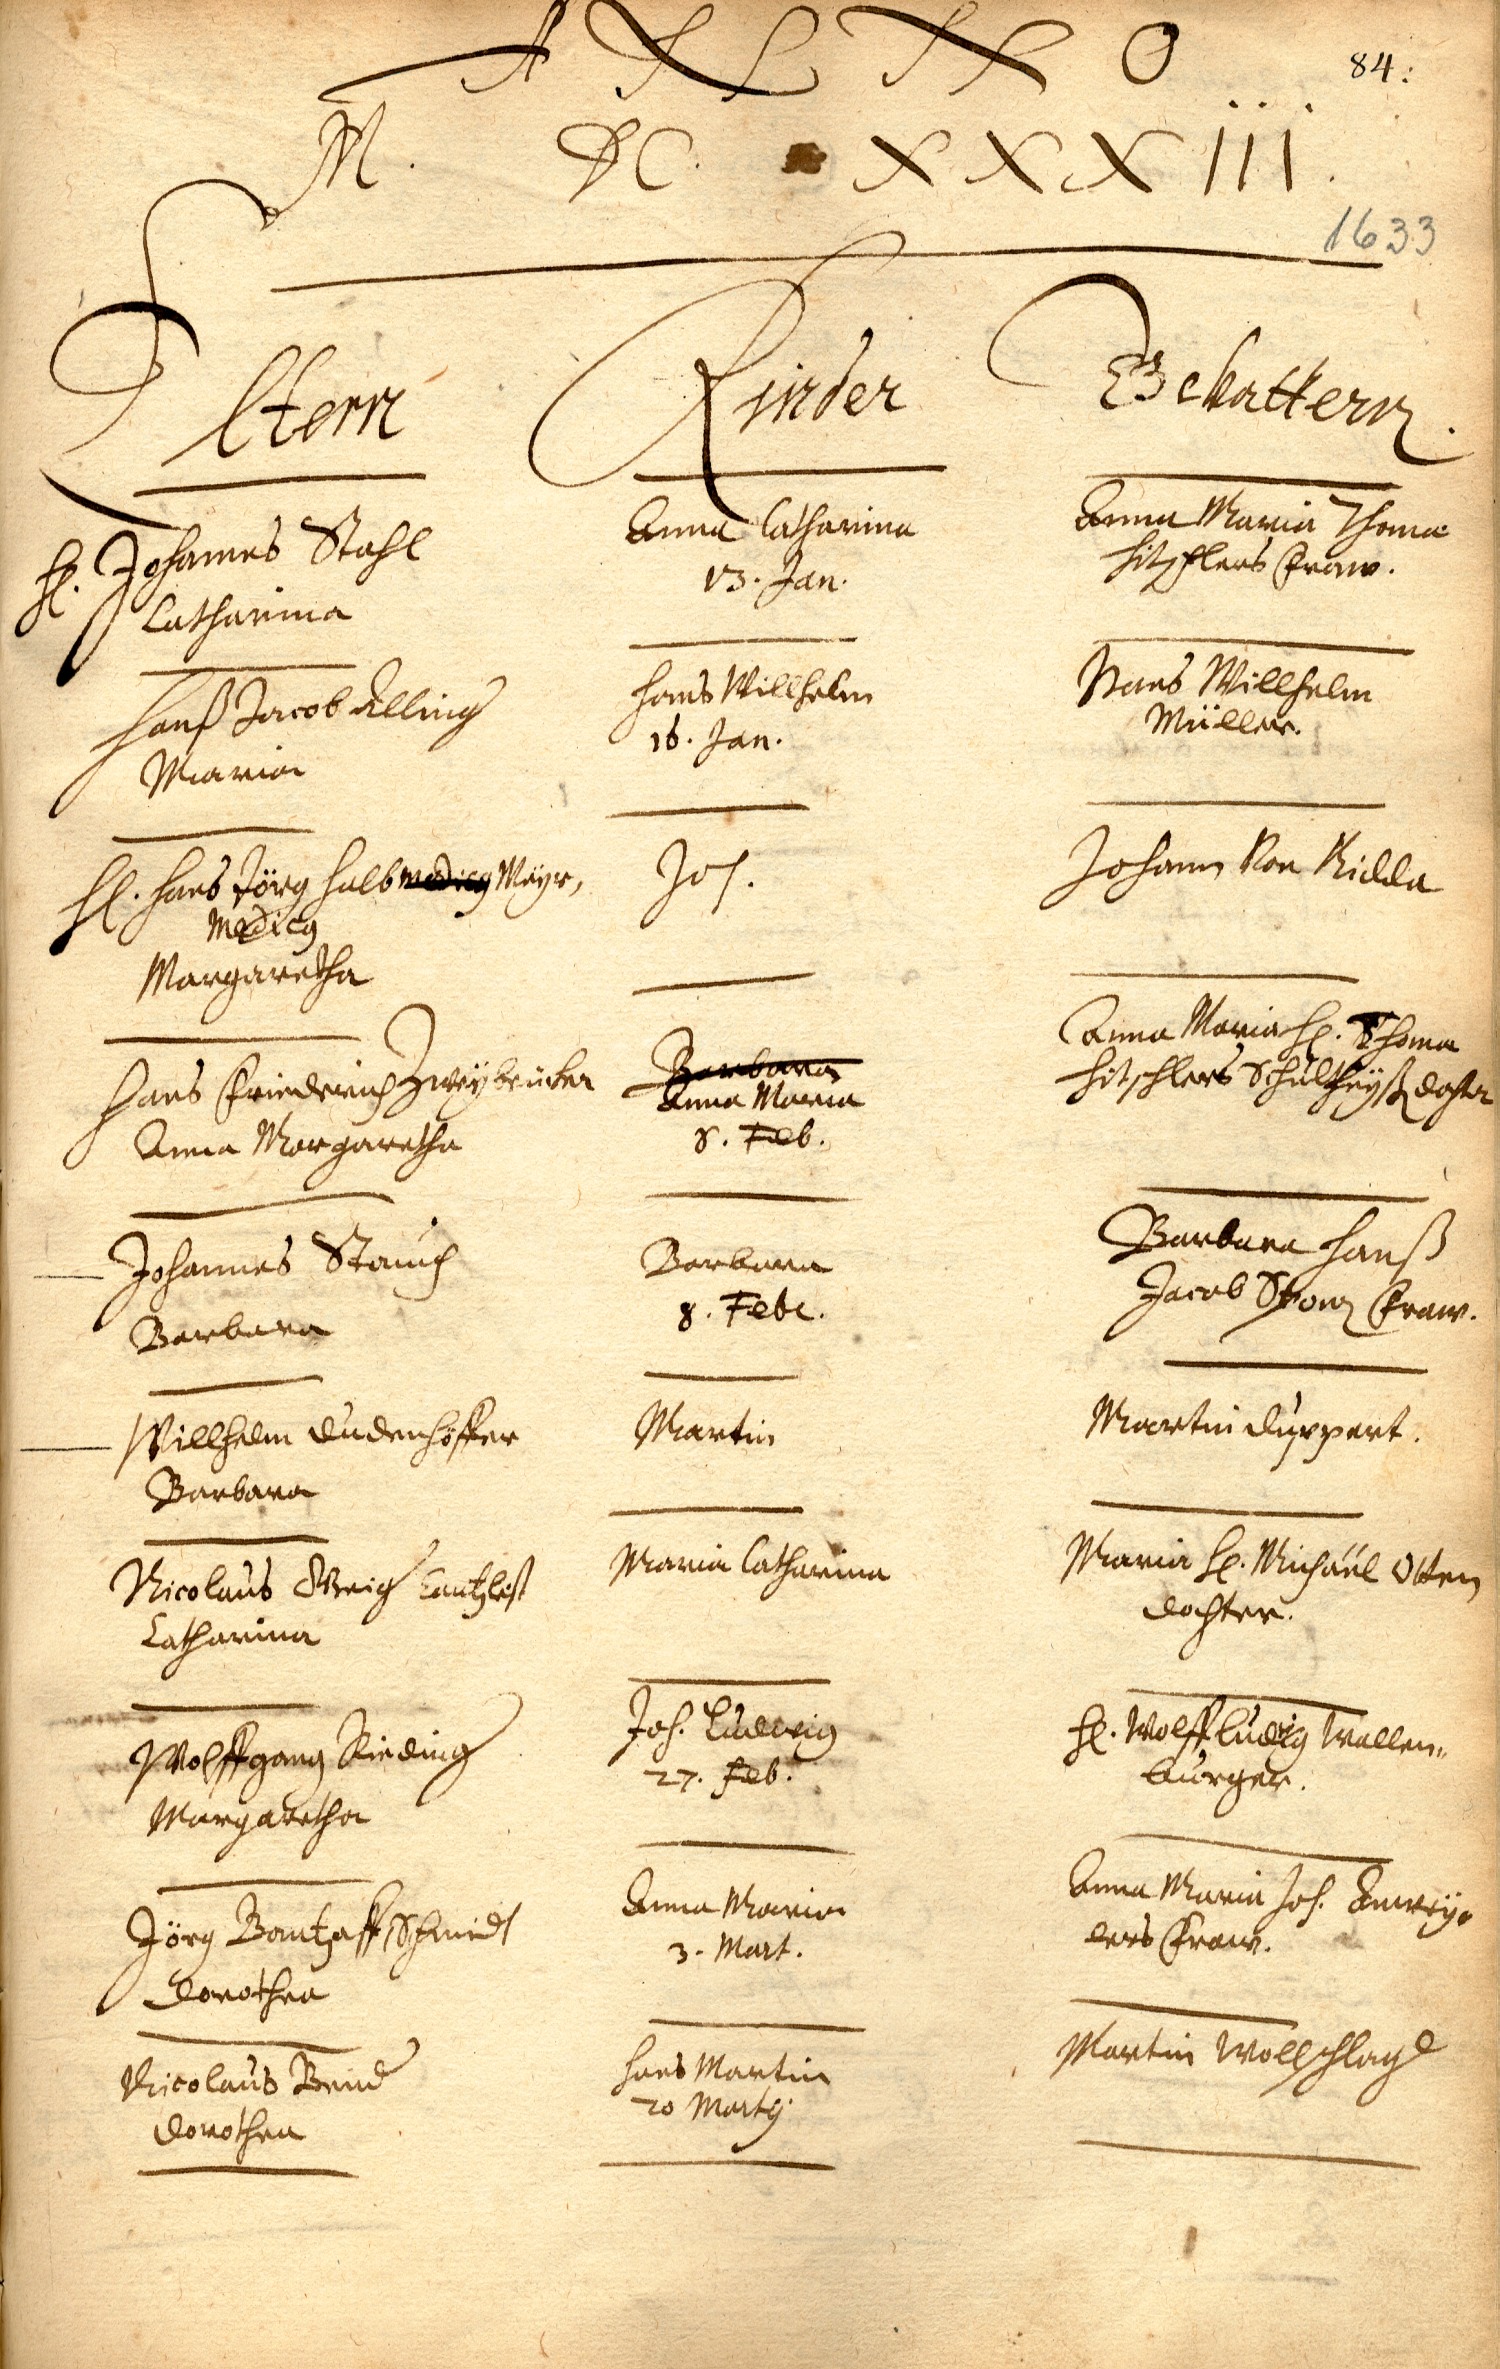 ANNO
84:
M. DC. XXXIII.
1633
Eltern
Kinder
Gevattern.
H. Johannes Stahl
Catharina
Anna Catharina
13. Jan.
Anna Maria Thoma
Hitzlers Fraw.
Hanß Jacob Elling
Maria
Hans Willhelm
16. Jan.
Hans Willhelm
Müller.
H. Hans Jörg Halb medicg Meyr,
Medicg
Margaretha
Joh.
Johann Von Nidda
Hans Friederich Zweybrücker
Anna Margaretha
Barbara
Anna Maria
8. Feb.
Anna Maria H. Thoma
Hitschlers Schultheyß dochter
Johannes Stauch
Barbara
Barbara
8. Febr.
Barbara Hanß
Jacob Fraw.
Willhelm Dudenhöffer
Barbara
Martin
Martin Duppert.
Nicolaus Cantzlist
Catharina
Maria Catharina
Maria H. Michaël Otten
dochter.
Wolffgang Rieding
Margaretha
Joh. Ludwig
27. Feb.
H. Wolff Ludwig Wallen„
burger.
Jörg Bantzaff Schmidt
Dorothea
Anna Maria
3. Mart.
Anna Maria Joh. Anwey„
lers Fraw.
Nicolaus
Dorothea
Hans Martin
20 Martij
Martin Wollschlag